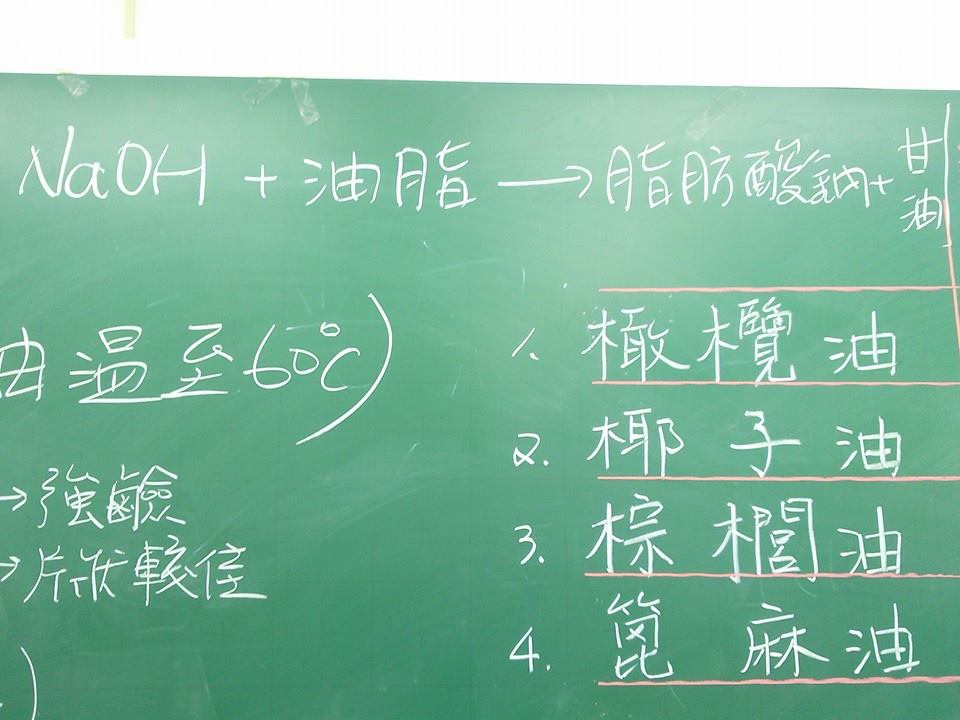 NaOH + 油脂 → 脂肪酸鈉 + 甘油
油溫至60℃)
→強鹼
→片狀較佳
)
1. 橄欖油
2. 椰子油
3. 棕櫚油
4. 篦麻油